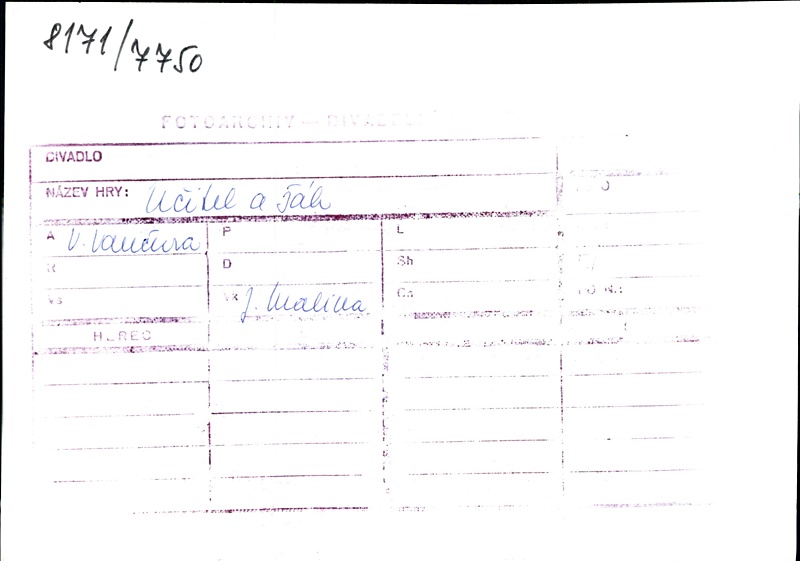 8171/7750
FOTOARCHIV — DIVADLO
DIVADLO
NÁZEV HRY: Učitel a žák
A V. Vančura P L
R D Sh
Vs Vk J. Malina
HEREC